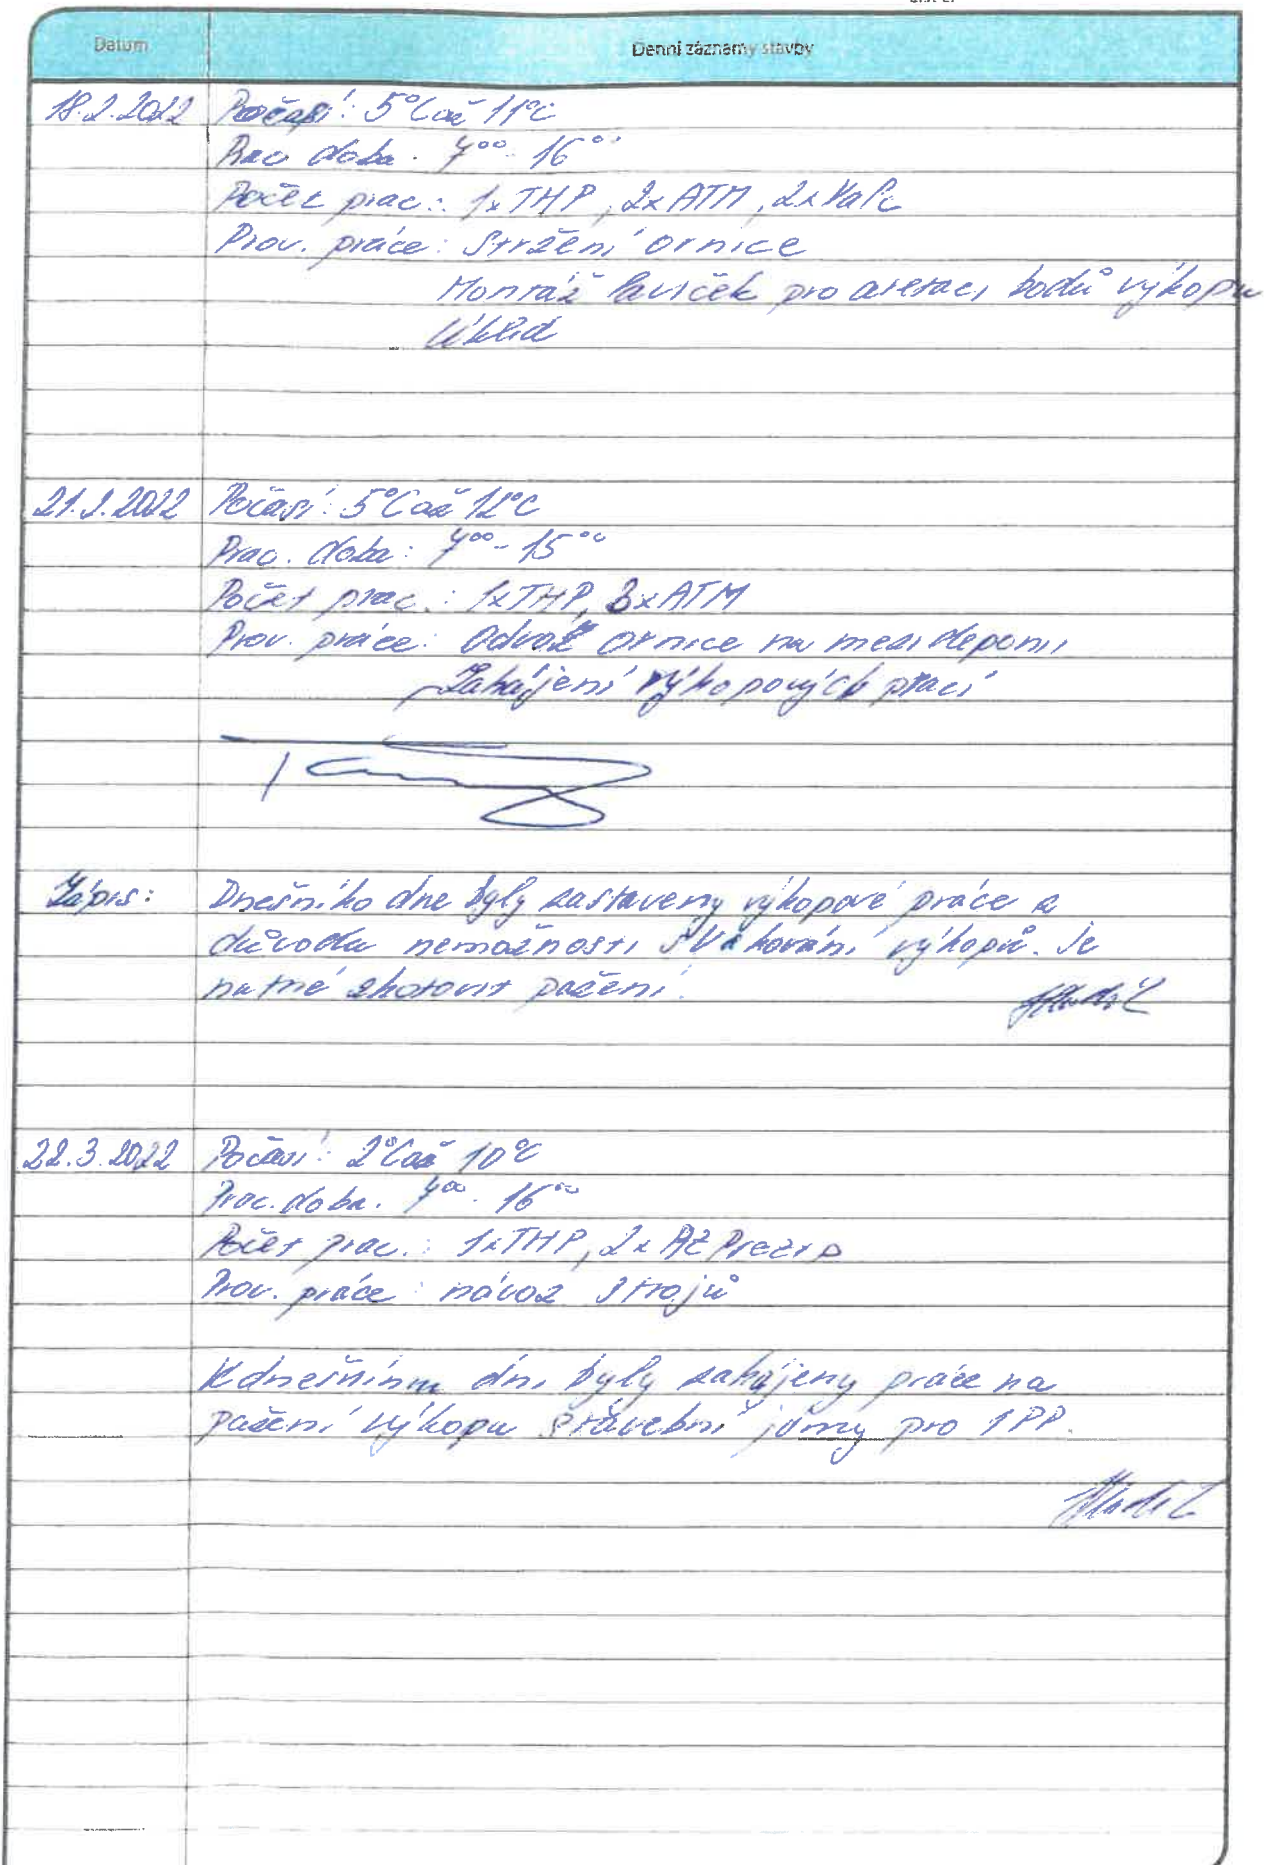 Datum Denní záznamy stavby
18.2.2022 Počasí: 5°C až 11°C
Prac doba. 7⁰⁰- 16⁰⁰
Počet prac.: 1x THP, 2x ATM, 2x
Prov. práce: Stržení ornice
Montáž laviček pro aretaci bodů výkopu
Úklid
21.2.2022 Počasí: 5°C až 12°C
Prac. doba: 7⁰⁰- 15⁰⁰
Počet prac.: 1xTHP, 3xATM
Prov. práce: Odvoz ornice na mezideponii
Zahájení výkopových prací
Zápis: Dnešního dne byly zastaveny výkopové práce z
důvodu nemožnosti svahování výkopů. Je
nutné zhotovit pažení.
22.3.2022 Počasí: 2°C až 10°C
Prac. doba. 7⁰⁰- 16⁰⁰
Počet prac.: 1xTHP, 2x
Prov. práce: návoz strojů
K dnešním dni byly zahájeny práce na
pažení výkopu stavební jámy pro 1PP.